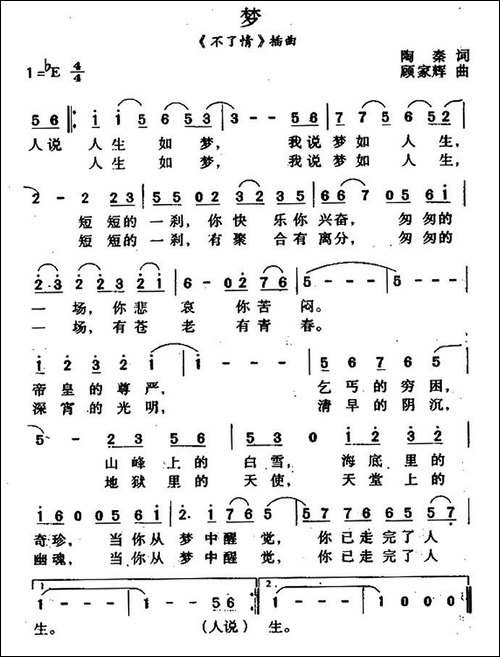 梦
《不了情》插曲
陶秦 词
1=♭E 4/4
顾家辉 曲
5 6 1 1 5 6 5 2 3 3 - - 5 6 7 7 5 6 7 6 5 2
人说 人生 如梦， 我说梦如 人生，
人生 如梦， 我说梦如 人生，
2 - 2 2 3 5 5 0 2 3 2 3 5 6 6 7 0 5 6 1
短 短的 一刹，你快 乐你 兴奋， 匆匆的
短 短的 一刹，有聚 合有 离分， 匆匆的
2·3 2 2 3 2 1 6 - 0 2 7 6 5 - - - 5 - - -
一场，你悲 哀 你苦 闷。
一场，有苍 老 有青 春。
1 2 3 2 1 1 - - - 5 6 7 6 6 5
帝皇的尊严， 乞丐的穷困，
深宵的光明， 清早的阴沉，
5 - 2 3 5 6 5 3 0 1 2 2 3
山峰 上的 白雪， 海底 里的
地狱 里的 天使， 天堂 上的
1 6 0 0 5 6 1 2· 1 7 6 5 0 7 6 5 6 5 5 7
奇珍， 当你从 梦中醒 觉， 你已走完了人
幽魂， 当你从 梦中醒 觉， 你已走完了人
1. 1 - - - 1 - - 5 6 2. 1 - - - 1 0 0 0
生。 (人说) 生。